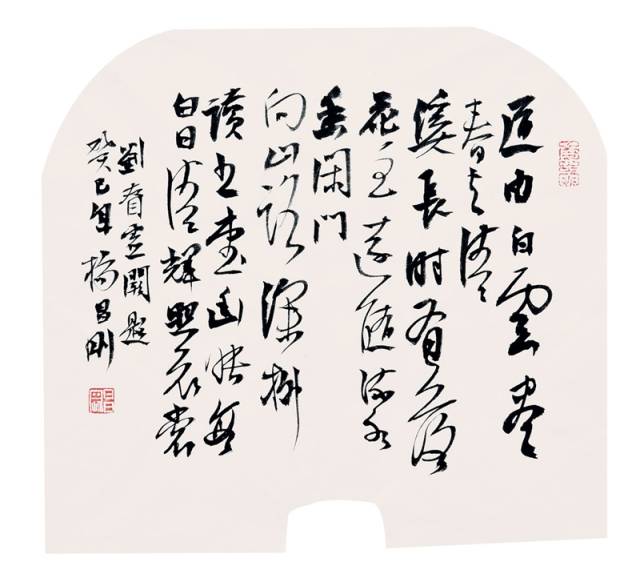 道由白雲盡
春与清
溪長时有落
花至遠隨流水
香閑門
向山路深柳
讀书堂幽映每
白日清輝照衣裳
劉眘虛闕題
癸巳年楊昌刚